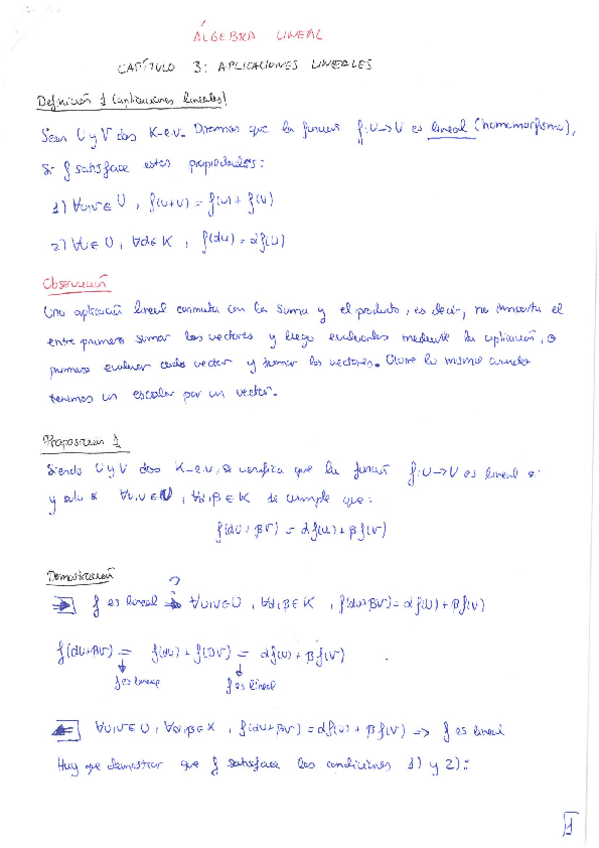 ÁLGEBRA LINEAL
CAPÍTULO 3: APLICACIONES LINEALES
Definición 1 (aplicaciones lineales)
Sean U y V dos K-e.v. Diremos que la función f:U→V es lineal (homomorfismo),
si f satisface estas propiedades:
1) ∀u,v∈U, f(u+v) = f(u) + f(v)
2) ∀u∈U, ∀α∈K, f(αu) = αf(u)
Observación
Una aplicación lineal conmuta con la suma y el producto, es decir, no importa el
entre primero sumar los vectores y luego evaluarlos mediante la aplicación, o
primero evaluar cada vector y sumar los vectores. Ocurre lo mismo cuando
tenemos un escalar por un vector.
Proposición 1
Siendo U y V dos K-e.v, se verifica que la función f:U→V es lineal si
y solo si ∀u,v∈U, ∀α,β∈K se cumple que:
f(αu+βv) = αf(u)+βf(v)
Demostración
⇒ f es lineal ⇒? ∀u,v∈U, ∀α,β∈K, f(αu+βv) = αf(u)+βf(v)
f(αu+βv) = f(αu) + f(βv) = αf(u) + βf(v)
f es lineal f es lineal
⇐ ∀u,v∈U, ∀α,β∈K, f(αu+βv) = αf(u) + βf(v) ⇒ f es lineal
Hay que demostrar que f satisface las condiciones 1) y 2):
1